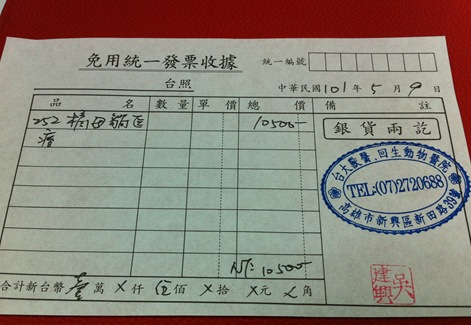 免用統一發票收據
統一編號
台照
中華民國101年5月9日
品名 數量 單價 總價 備註
252 10500-
銀貨兩訖
台大獸醫.回生動物醫院
TEL:(07)2720688
高雄市新興區新田路39號
NT: 10500-
合計新台幣壹萬X仟伍佰X拾X元X角
吳建興